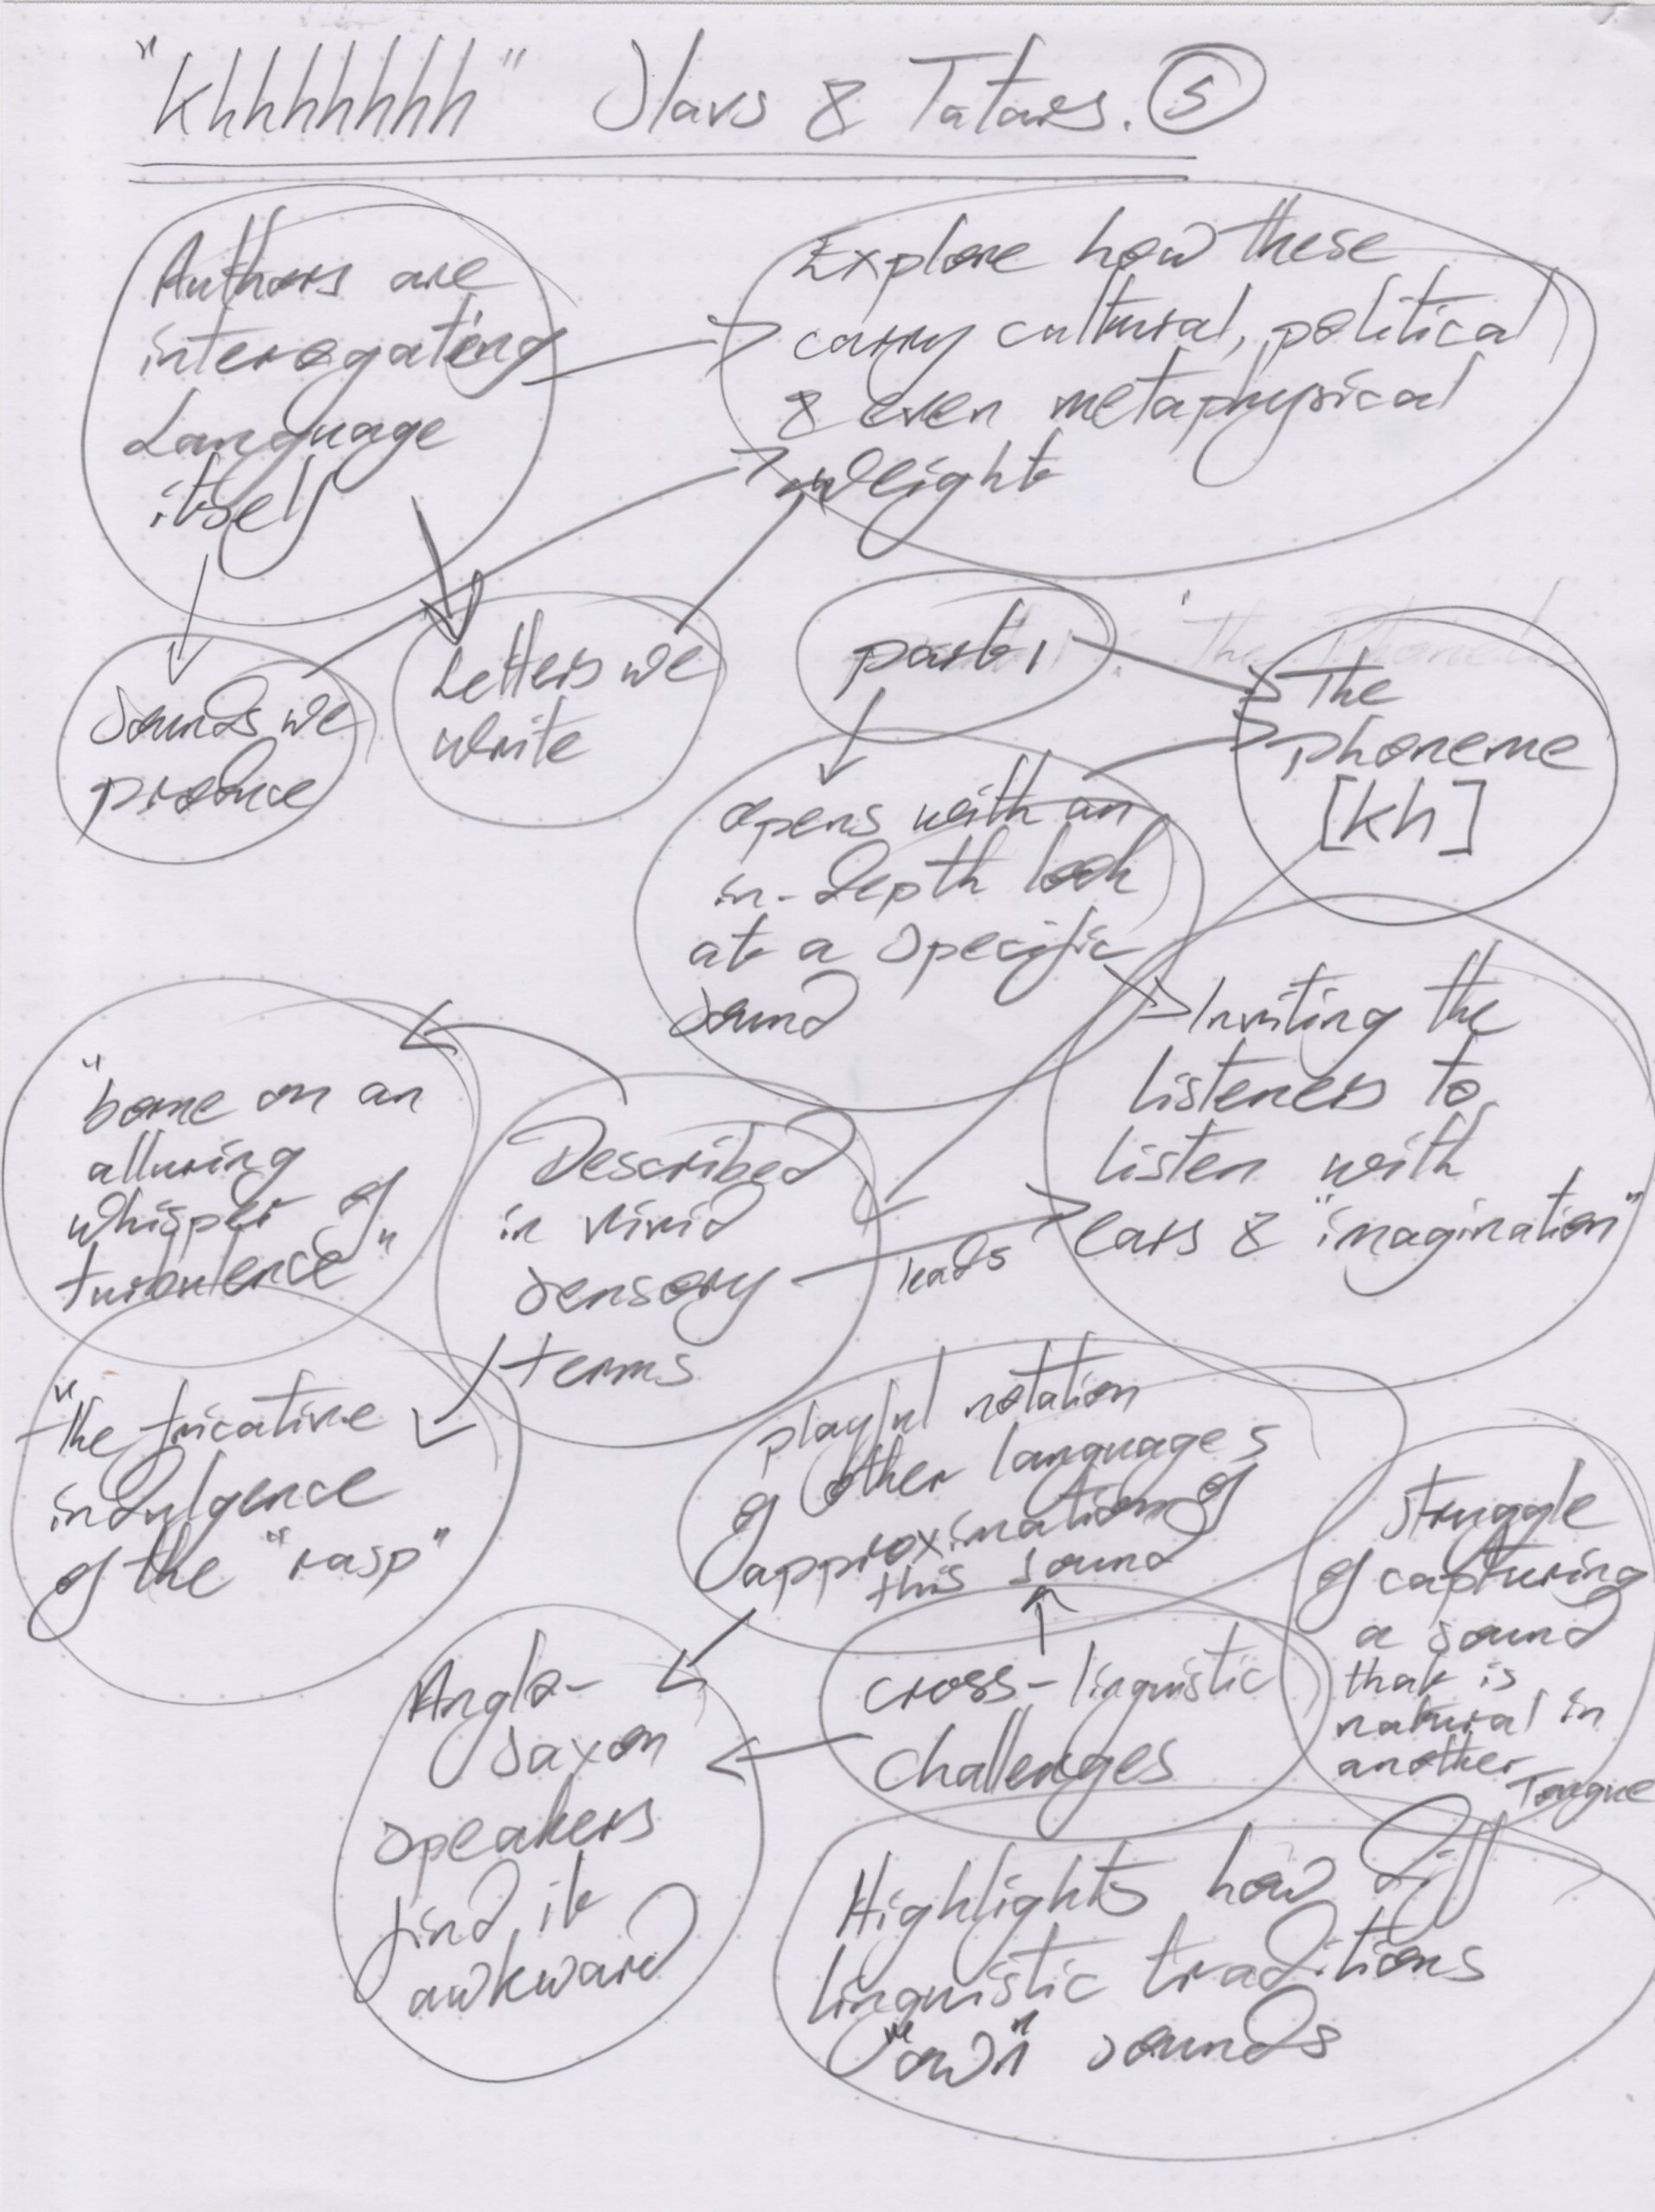 "Khhhhhhh" Slavs & Tatars. 5
Authors are
interogating
Language
itself
Explore how these
carry cultural, political
& even metaphysical
weight
Sounds we
produce
Letters we
write
part 1
The
phoneme
[kh]
opens with an
in-depth look
at a specific
sound
Inviting the
listeners to
listen with
ears & "imagination"
"borne on an
alluring
whisper of
turbulence"
Described
in vivid
sensory
terms
leads
"the fricative
indulgence
of the "rasp"
playful notation
of other languages
approximation of
this sound
struggle
of capturing
a sound
that is
natural in
another
Tongue
Anglo-
Saxon
speakers
find it
awkward
cross-linguistic
challenges
Highlights how diff
linguistic traditions
"own" sounds